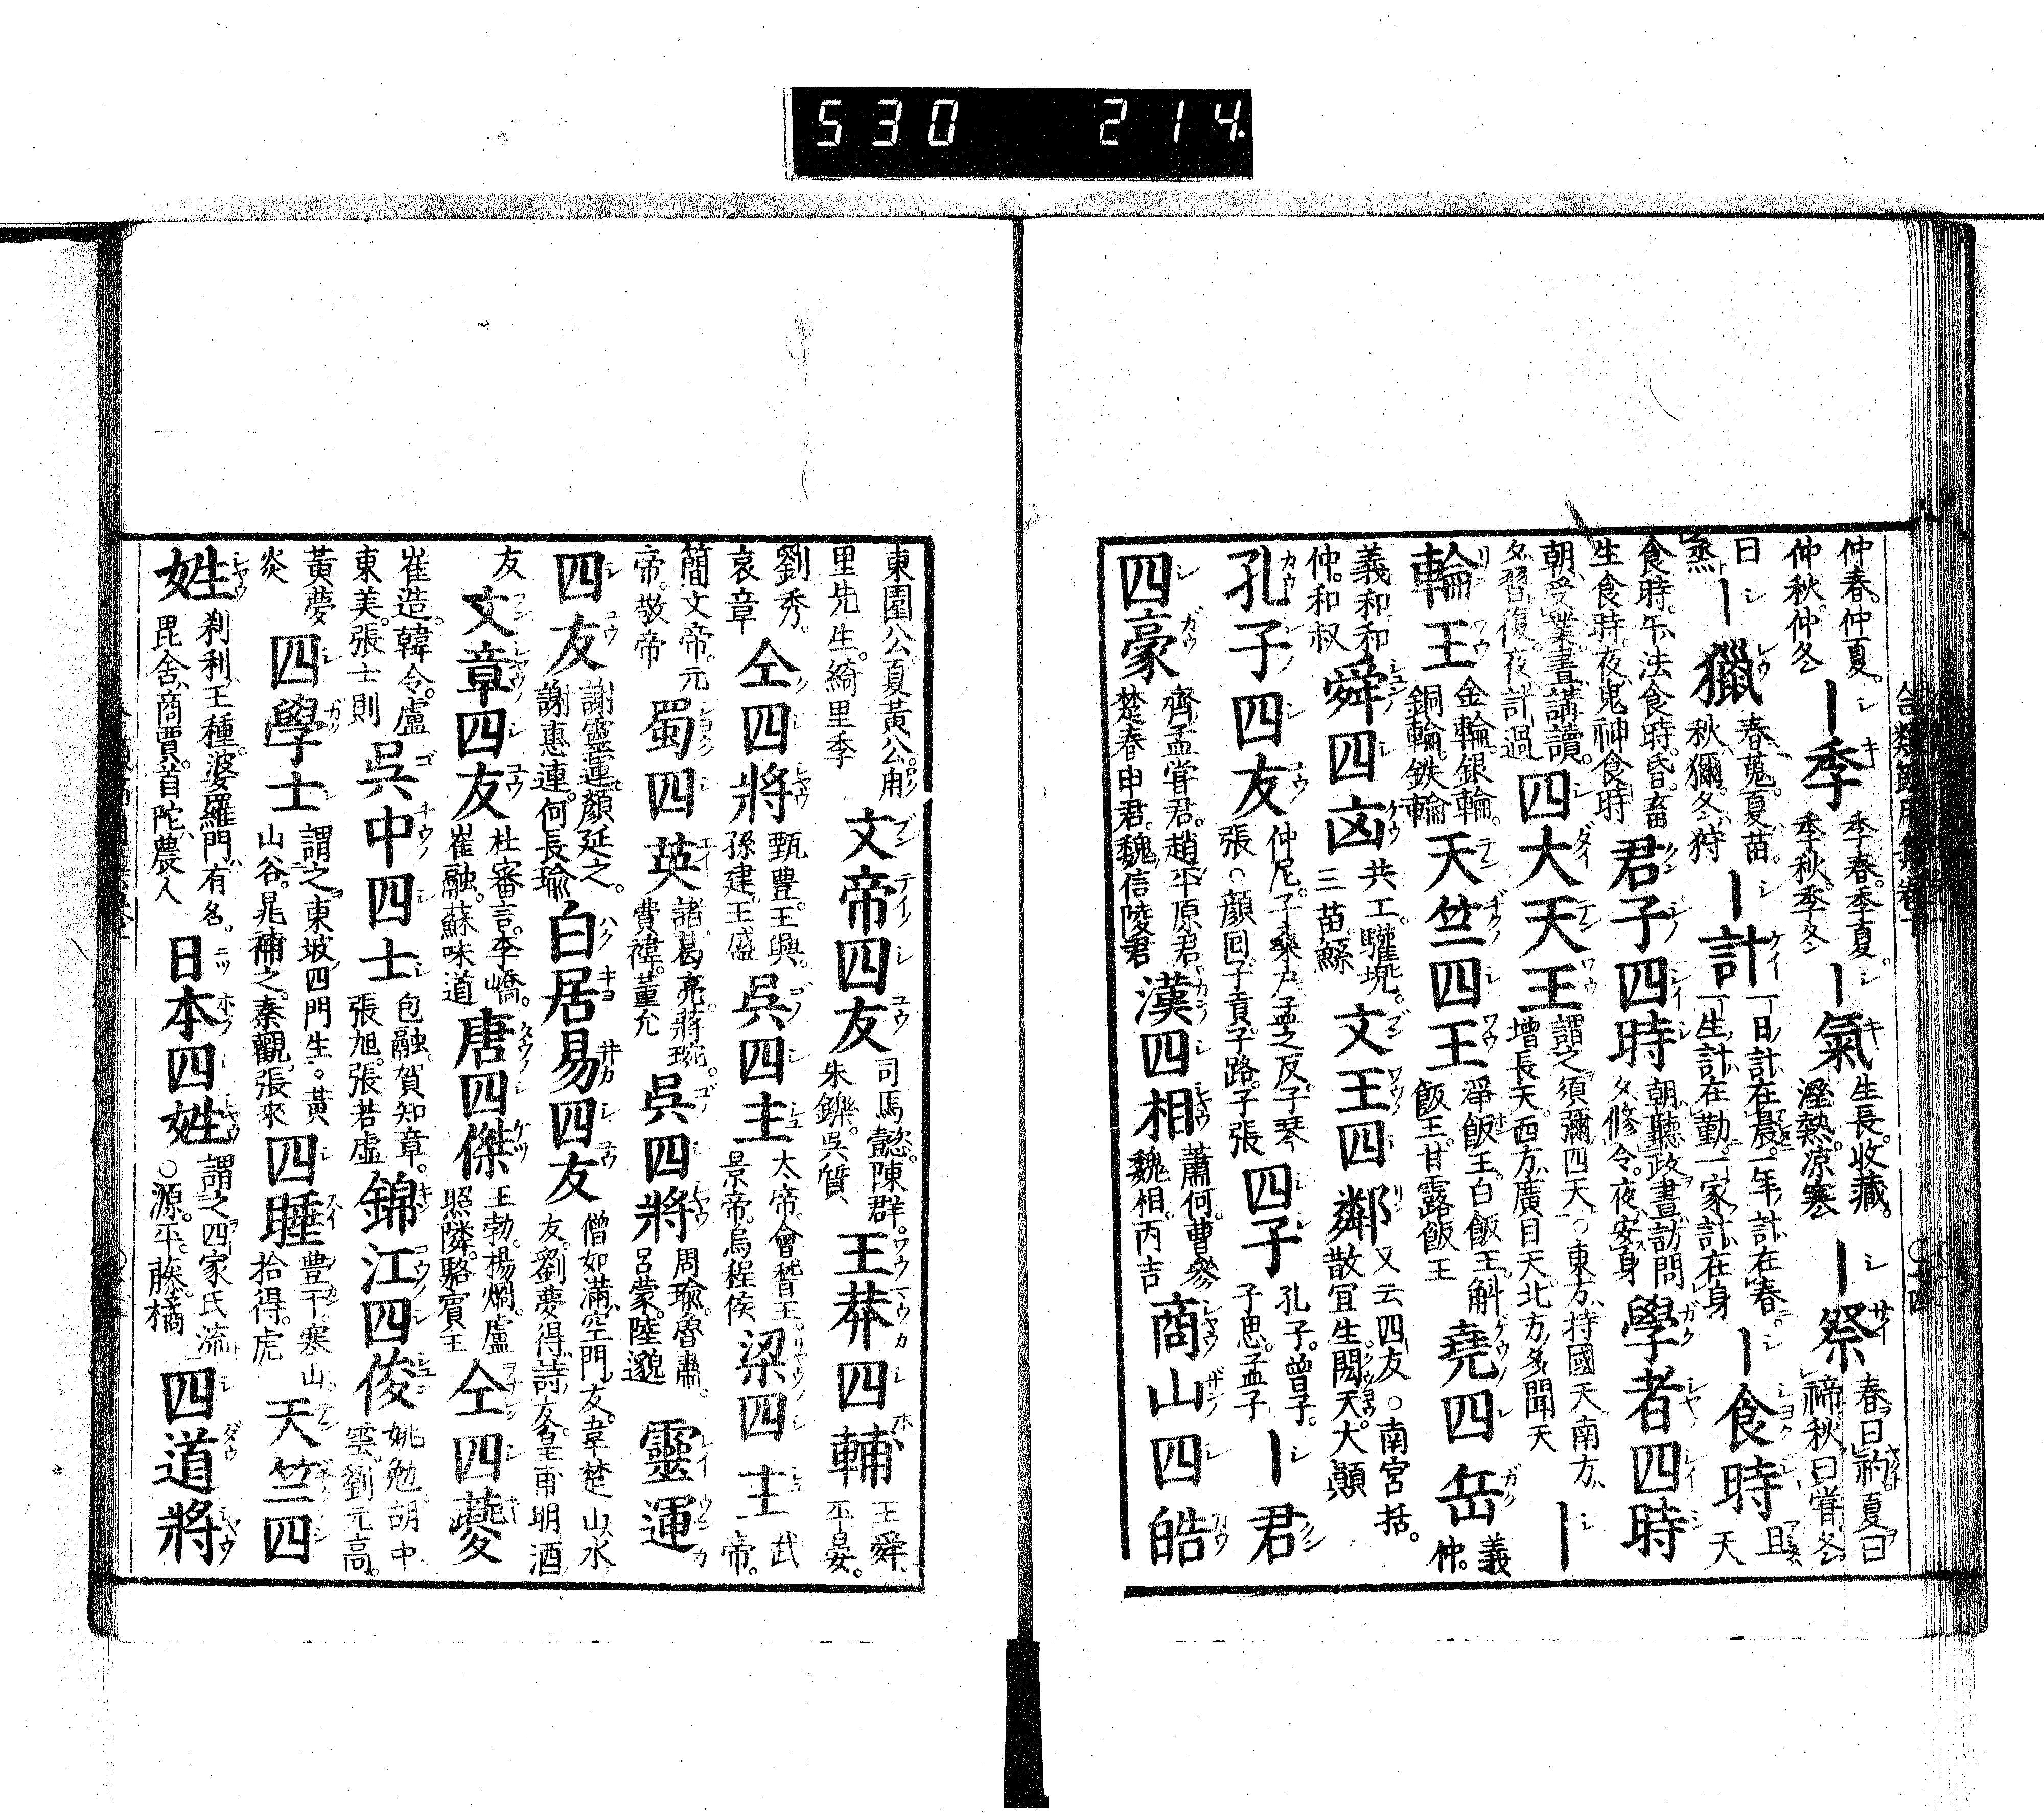 530 214
仲春。仲夏。仲秋。仲冬 ｜季 季春。季夏。季秋。季冬 ｜氣 生長。收藏。溼熱。凉寒 ｜祭 春曰礿。夏曰禘。秋曰嘗。冬
曰烝 ｜獵 春蒐。夏苗。秋獮。冬狩 ｜計 一日計在晨。一年計在春。一生計在勤。一家計在身 ｜食時 旦天
食時。午法食時。昏畜生食時。夜鬼神食時 君子四時 朝聽政。晝訪問。夕修令。夜安身 學者四時
朝受業。晝講讀。夕習復。夜計過 四大天王 謂之須彌四天。○東方持國天。南方增長天。西方廣目天。北方多聞天 ｜
輪王 金輪。銀輪。銅輪。鉄輪 天竺四王 淨飯王。白飯王。斛飯王。甘露飯王 堯四岳 義仲。
義和。和仲。和叔 舜四凶 共工。驩兜。三苗。鯀 文王四鄰 又云四友。○南宮括。散宜生。閎夭。大顛
孔子四友 仲尼。子桑户。孟之反。子琴張。○顔回。子貢。子路。子張 四子 孔子。曾子。子思。孟子 ｜君
四豪 齊孟嘗君。趙平原君。楚春申君。魏信陵君 漢四相 蕭何。曹參。魏相。丙吉 商山四皓
東園公。夏黃公。甪里先生。綺里季 文帝四友 司馬懿。陳群。朱鑠。吳質 王莽四輔 王舜。平晏。
劉秀。哀章 仝四將 甄豊。王興。孫建。王盛 吳四主 太帝。會稽王。景帝。烏程侯 梁四主 武帝。
簡文帝。元帝。敬帝 蜀四英 諸葛亮。蔣琬。費褘。董允 吳四將 周瑜。魯肅。呂蒙。陸遜 靈運
四友 謝靈運。顏延之。謝惠連。何長瑜 白居易四友 僧如滿空門友。韋楚山水友。劉夢得詩友。皇甫明酒
友 文章四友 杜審言。李嶠。崔融。蘇味道 唐四傑 王勃。楊烱。盧照隣。駱賓王 仝四夔
崔造。韓令。盧東美。張士則 吳中四士 包融。賀知章。張旭。張若虛 錦江四俊 姚勉。胡中雲。劉元高。
黃夢炎 四學士 謂之東坡四門生。黃山谷。晁補之。秦觀。張來 四睡 豊干。寒山。拾得。虎 天竺四
姓 刹利王種。婆羅門有名。毘舍商賈。首陀農人 日本四姓 謂之四家氏流。○源。平。藤。橘 四道將